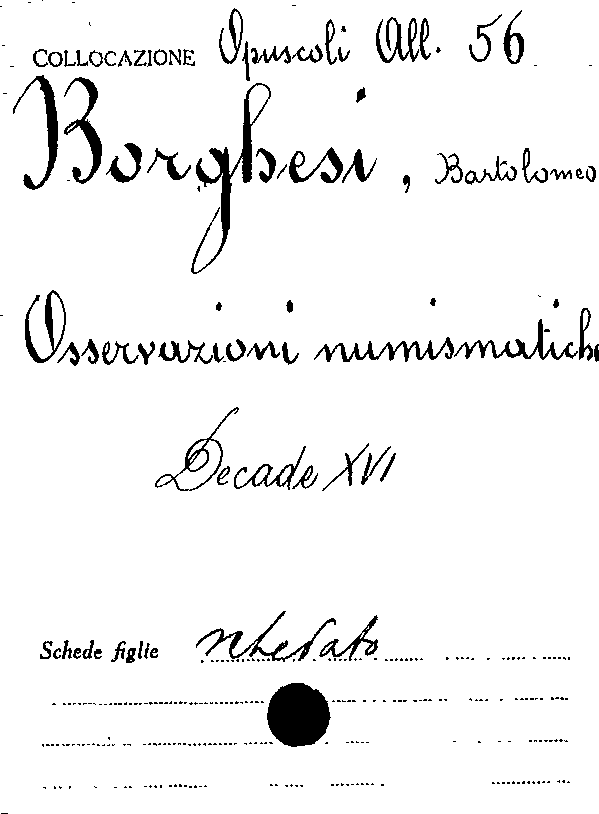 COLLOCAZIONE Opuscoli All. 56
Borghesi, Bartolomeo
Osservazioni numismatich
Decade XVI
Schede figlie schedato